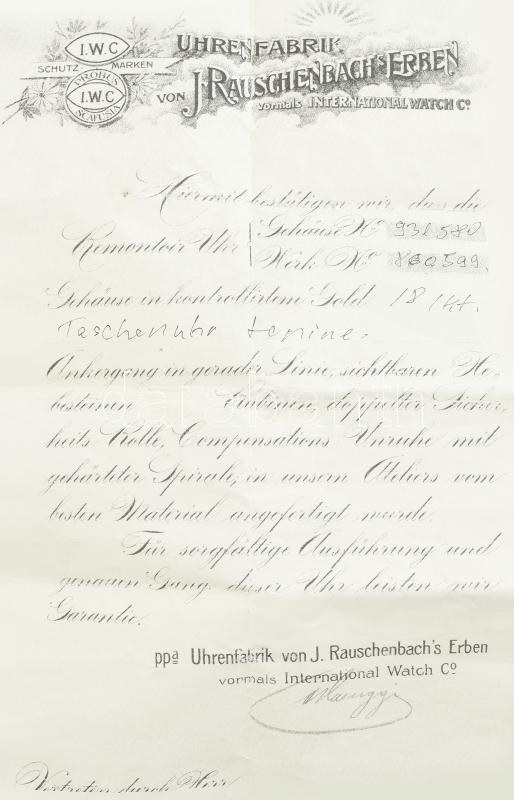 I.W.C
SCHUTZ MARKEN
PROBUS
I.W.C
SCAFUSIA
UHRENFABRIK
VON J. RAUSCHENBACH'S ERBEN
vormals INTERNATIONAL WATCH Co
Hiermit bestätigen wir, dass die
Remontoir Uhr
Gehäuse No 931580
Werk No 860599.
Gehäuse in kontrollirtem Gold 18 Kt.
Taschenuhr
Ankergang in gerader Linie, sichtbaren He-
besteinen Rubinen, doppelter Sicher-
heits-Rolle, Compensations Unruhe mit
gehärteter Spirale, in unsern Ateliers vom
besten Material angefertigt wurde.
Für sorgfältige Ausführung und
genauen Gang dieser Uhr leisten wir
Garantie.
ppa Uhrenfabrik von J. Rauschenbach's Erben
vormals International Watch Co
Vertreten durch Herr
darabanth